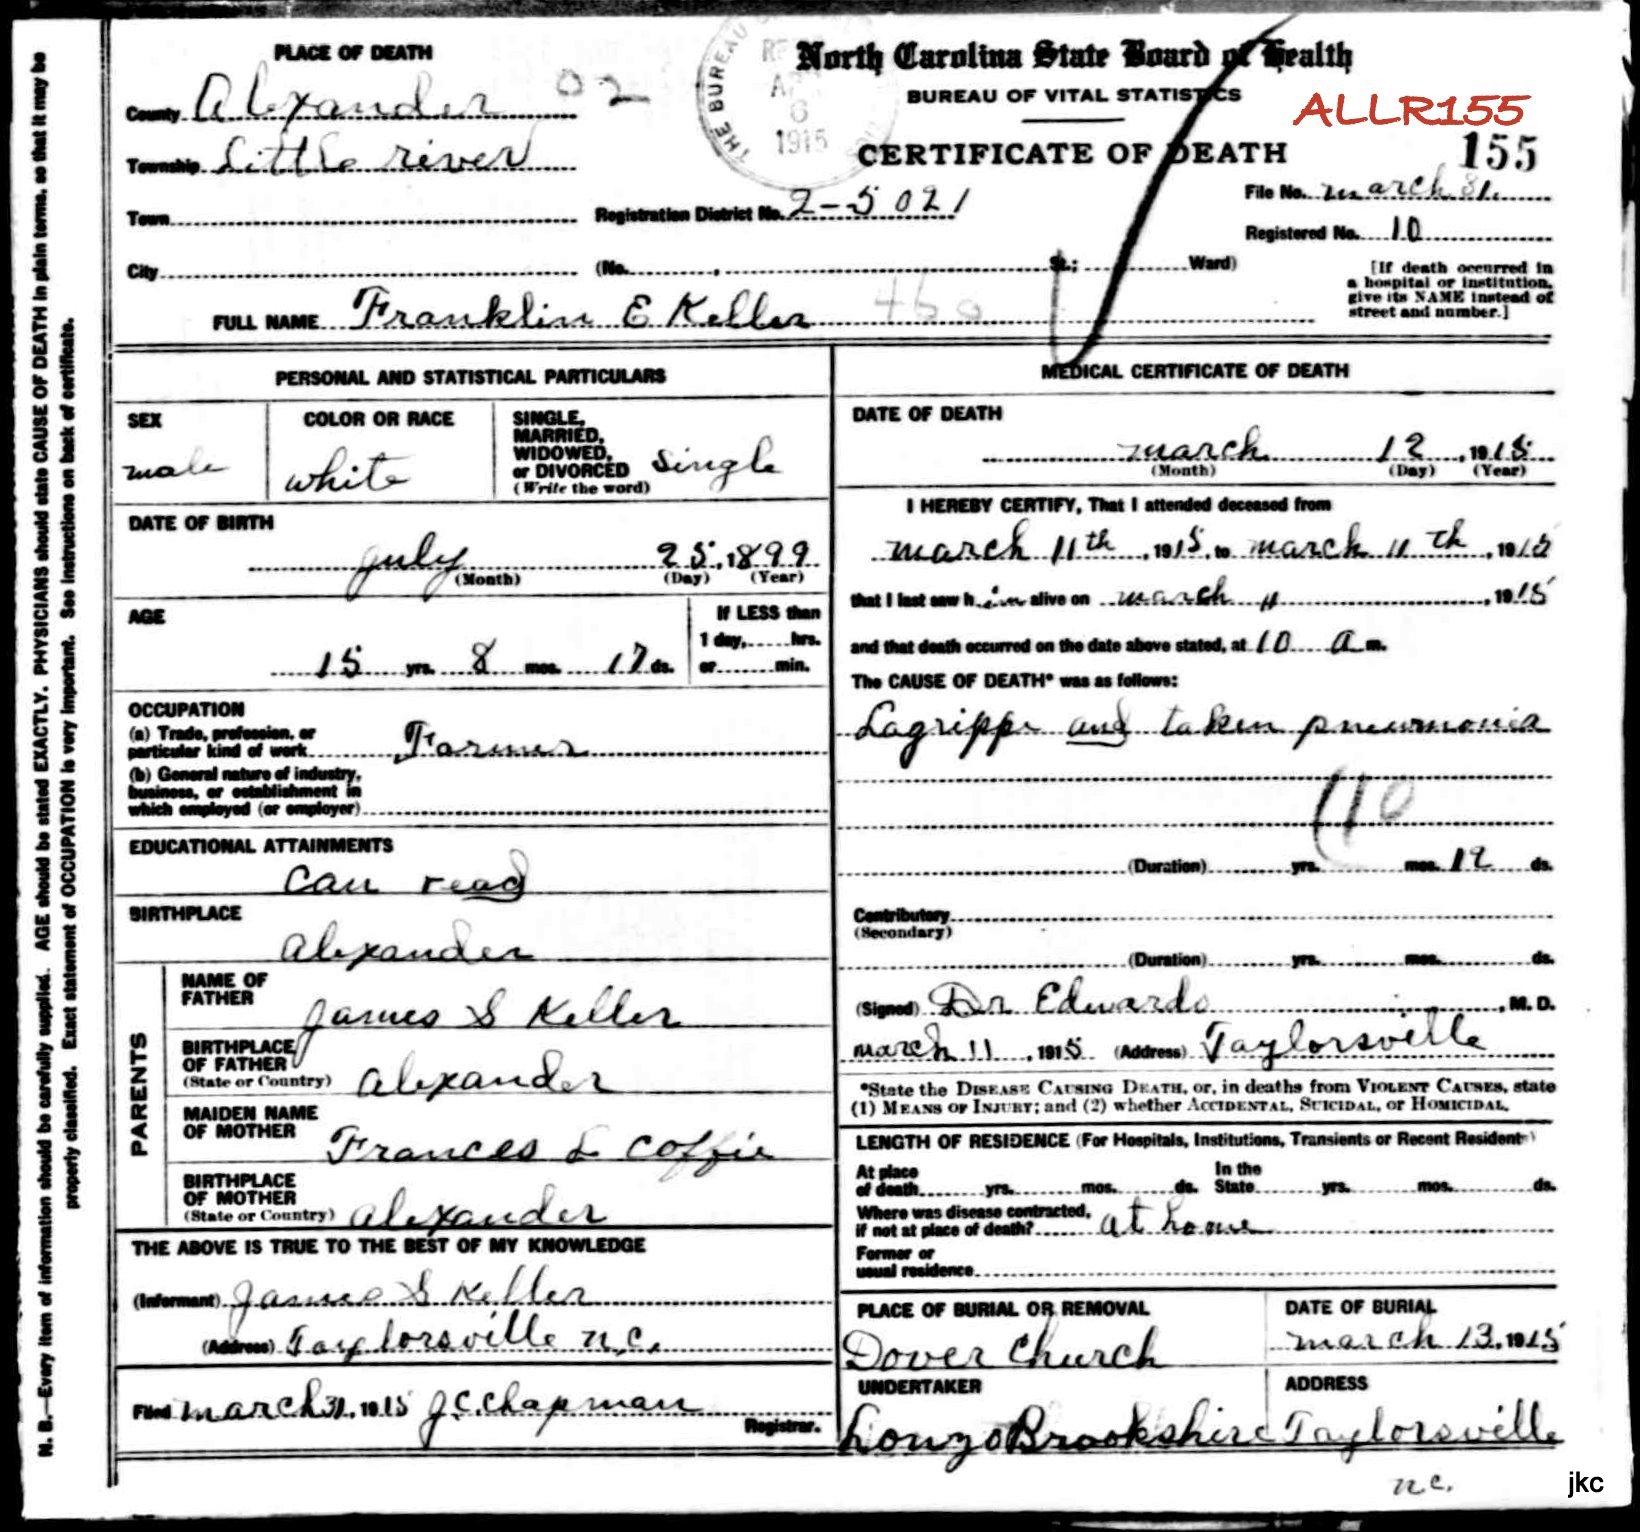 PLACE OF DEATH
County Alexander 02
Township Little river
Town
City
THE BUREAU
1915
North Carolina State Board of Health
BUREAU OF VITAL STATISTICS
CERTIFICATE OF DEATH
ALLR155
155
Registration District No. 2-5021
File No. march 31.
Registered No. 10
(No. , St.; Ward)
[If death occurred in
a hospital or institution,
give its NAME instead of
street and number.]
FULL NAME Franklin E Keller
PERSONAL AND STATISTICAL PARTICULARS
SEX
male
COLOR OR RACE
white
SINGLE,
MARRIED,
WIDOWED,
or DIVORCED
(Write the word)
single
DATE OF BIRTH
July 25, 1899
(Month) (Day) (Year)
AGE
15 yrs. 8 mos. 17 ds.
If LESS than
1 day, hrs.
or min.
OCCUPATION
(a) Trade, profession, or
particular kind of work Farmer
(b) General nature of industry,
business, or establishment in
which employed (or employer)
EDUCATIONAL ATTAINMENTS
can read
BIRTHPLACE
Alexander
PARENTS
NAME OF
FATHER
James S Keller
BIRTHPLACE
OF FATHER
(State or Country) Alexander
MAIDEN NAME
OF MOTHER
Frances L Coffie
BIRTHPLACE
OF MOTHER
(State or Country) Alexander
THE ABOVE IS TRUE TO THE BEST OF MY KNOWLEDGE
(Informant) James S Keller
(Address) Taylorsville n,c,
Filed march 31, 1915 J.C. Chapman
Registrar.
MEDICAL CERTIFICATE OF DEATH
DATE OF DEATH
march 12, 1915
(Month) (Day) (Year)
I HEREBY CERTIFY, That I attended deceased from
march 11th, 1915, to march 11th, 1915
that I last saw him alive on march 11, 1915
and that death occurred on the date above stated, at 10 a m.
The CAUSE OF DEATH* was as follows:
Lagrippe and taken pneumonia
110
(Duration) yrs. mos. 12 ds.
Contributory
(Secondary)
(Duration) yrs. mos. ds.
(Signed) Dr Edwards, M. D.
march 11, 1915 (Address) Taylorsville
*State the DISEASE CAUSING DEATH, or, in deaths from VIOLENT CAUSES, state
(1) MEANS OF INJURY; and (2) whether ACCIDENTAL, SUICIDAL, or HOMICIDAL.
LENGTH OF RESIDENCE (For Hospitals, Institutions, Transients or Recent Residents)
At place
of death yrs. mos. ds.
In the
State yrs. mos. ds.
Where was disease contracted,
if not at place of death? at home
Former or
usual residence
PLACE OF BURIAL OR REMOVAL
Dover Church
DATE OF BURIAL
march 13, 1915
UNDERTAKER
Lonzo Brookshire
ADDRESS
Taylorsville
n.c.
jkc
N. B.—Every item of information should be carefully supplied. AGE should be stated EXACTLY. PHYSICIANS should state CAUSE OF DEATH in plain terms, so that it may be
properly classified. Exact statement of OCCUPATION is very important. See instructions on back of certificate.